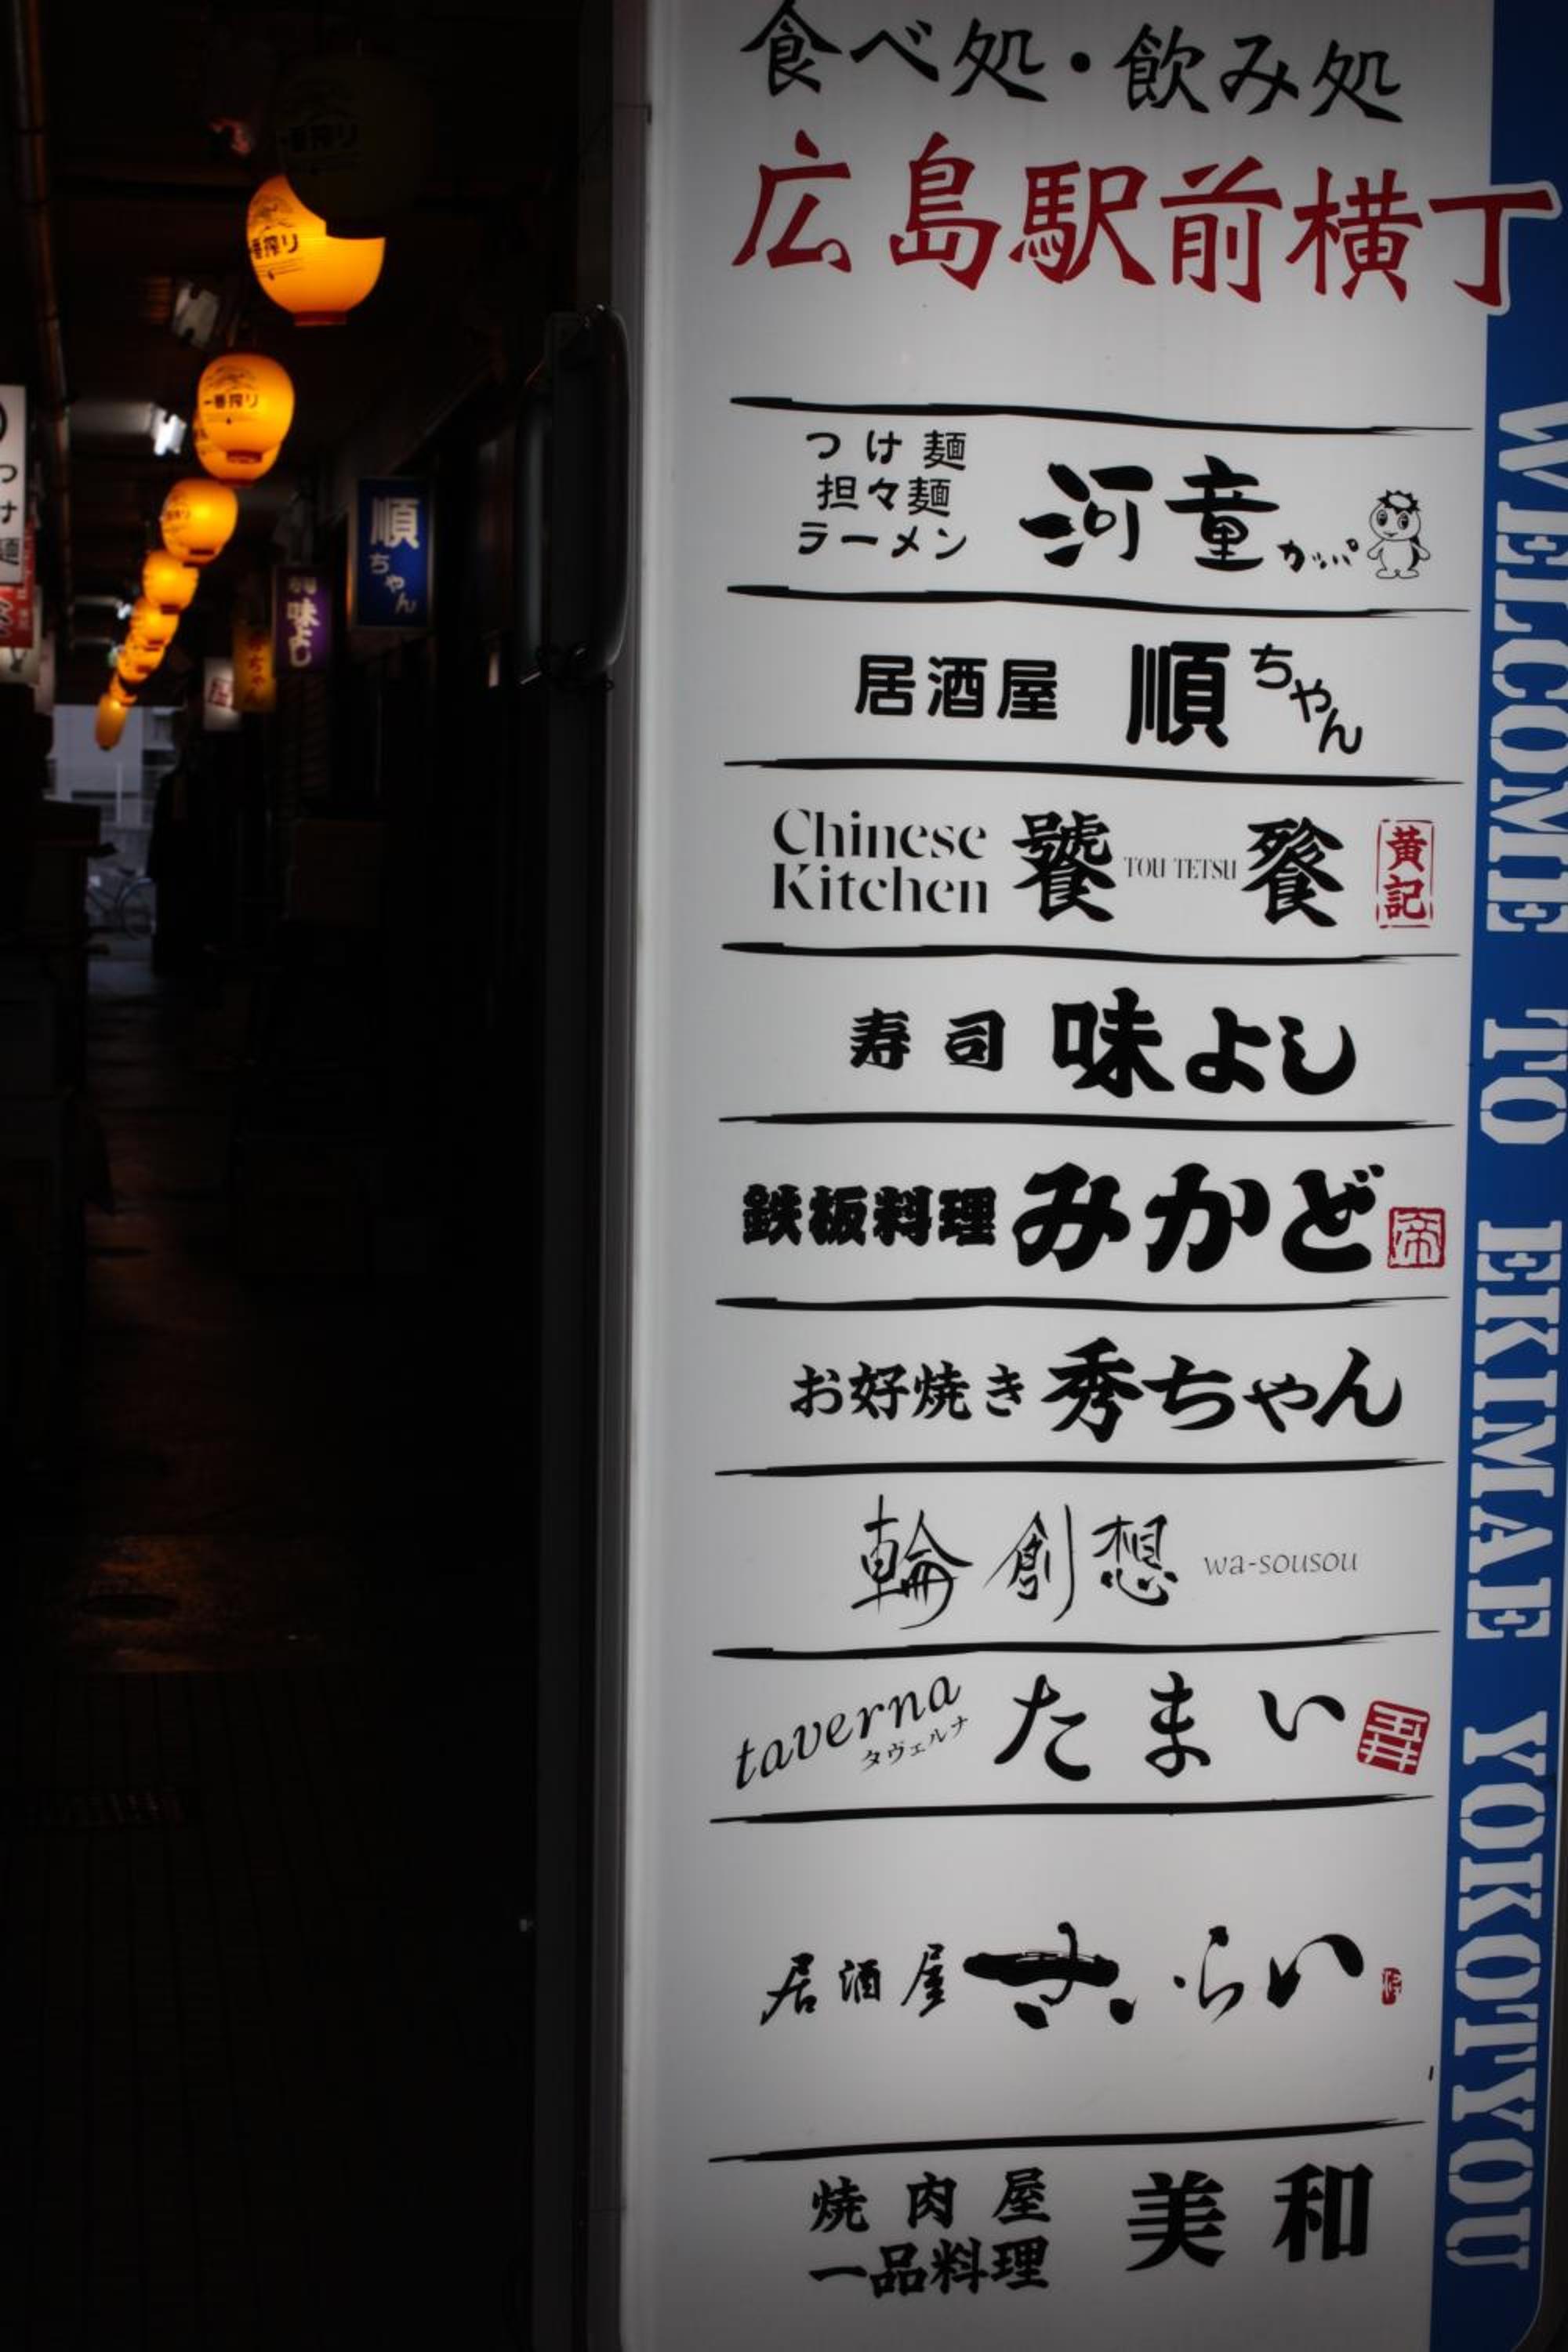 食べ処・飲み処
広島駅前横丁
つけ麺
担々麺
ラーメン
河童
かっぱ
居酒屋 順ちゃん
Chinese
Kitchen
饕 TOU TETSU 餮
黄記
寿司 味よし
鉄板料理 みかど
帝
お好焼き 秀ちゃん
輪創想 wa-sousou
taverna
タヴェルナ
たまい
玉井
居酒屋 きらい
焼肉屋
一品料理
美和
WELCOME TO EKIMAE YOKOTYOU
一番搾り
一番搾り
一番搾り
順ちゃん
味よし
つけ麺